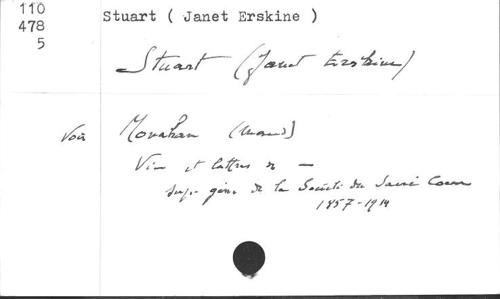 110
478
5
Stuart ( Janet Erskine )
Stuart (Janet Erskine)
Voir Monahan (Maud)
Vie et lettres de —
Sup. géné. de la Société du Sacré Coeur
1857-1914